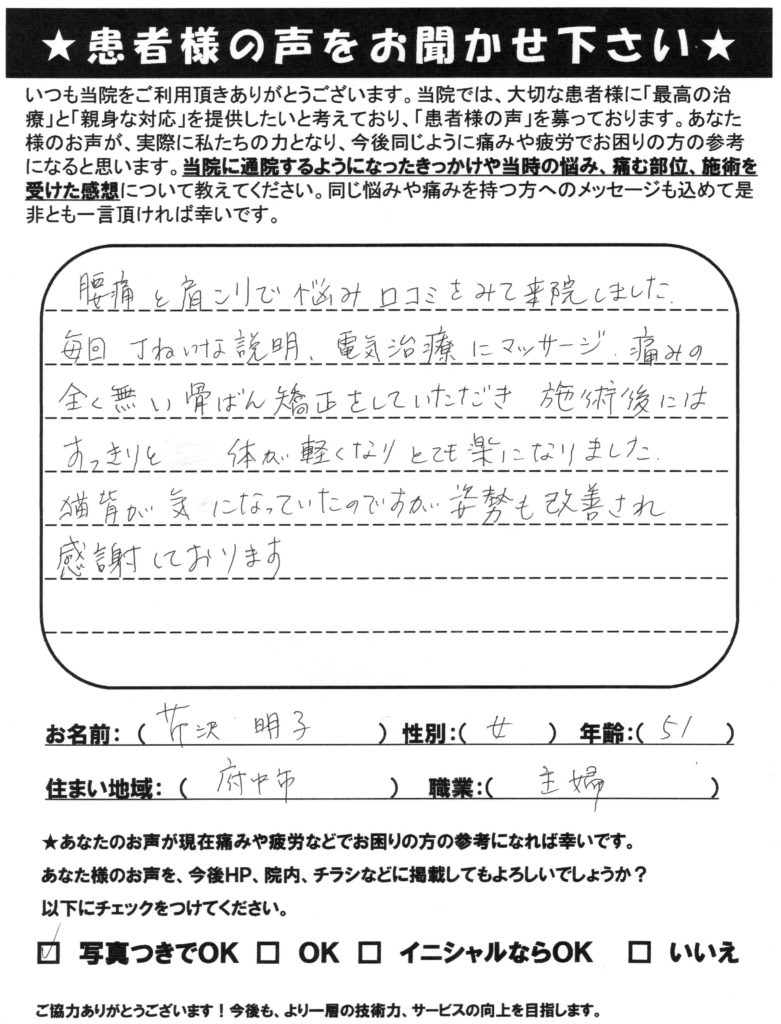 ★患者様の声をお聞かせ下さい★
いつも当院をご利用頂きありがとうございます。当院では、大切な患者様に「最高の治
療」と「親身な対応」を提供したいと考えており、「患者様の声」を募っております。あなた
様のお声が、実際に私たちの力となり、今後同じように痛みや疲労でお困りの方の参考
になると思います。当院に通院するようになったきっかけや当時の悩み、痛む部位、施術を
受けた感想について教えてください。同じ悩みや痛みを持つ方へのメッセージも込めて是
非とも一言頂ければ幸いです。
腰痛と肩こりで悩み口コミをみて来院しました.
毎回 丁ねいな説明、電気治療にマッサージ、痛みの
全く無い骨ばん矯正をしていただき 施術後には
すっきりと 体が軽くなりとても楽になりました.
猫背が気になっていたのですが姿勢も改善され
感謝しております
お名前：（ 芹沢 明子 ） 性別：（ 女 ） 年齢：（ 51 ）
住まい地域：（ 府中市 ） 職業：（ 主婦 ）
★あなたのお声が現在痛みや疲労などでお困りの方の参考になれば幸いです。
あなた様のお声を、今後HP、院内、チラシなどに掲載してもよろしいでしょうか？
以下にチェックをつけてください。
☑ 写真つきでOK □ OK □ イニシャルならOK □ いいえ
ご協力ありがとうございます！今後も、より一層の技術力、サービスの向上を目指します。